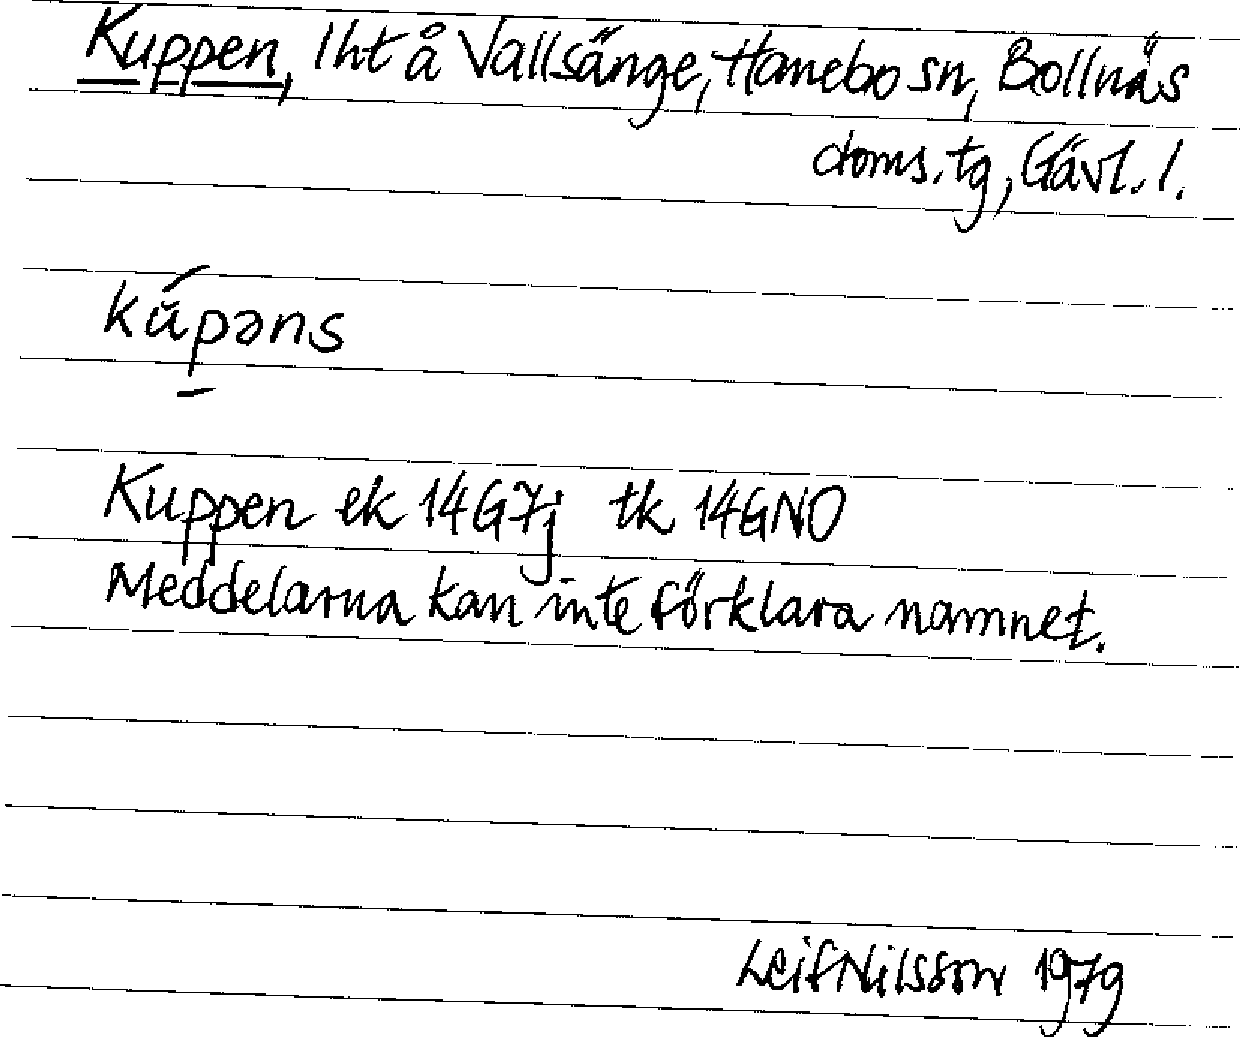 Kuppen, lht å Vallsänge, Hanebo sn, Bollnäs
doms.tg, Gävl. l.
kŭ́p̠əns
Kuppen ek 14G7j tk 14GNO
Meddelarna kan inte förklara namnet.
Leif Nilsson 1979